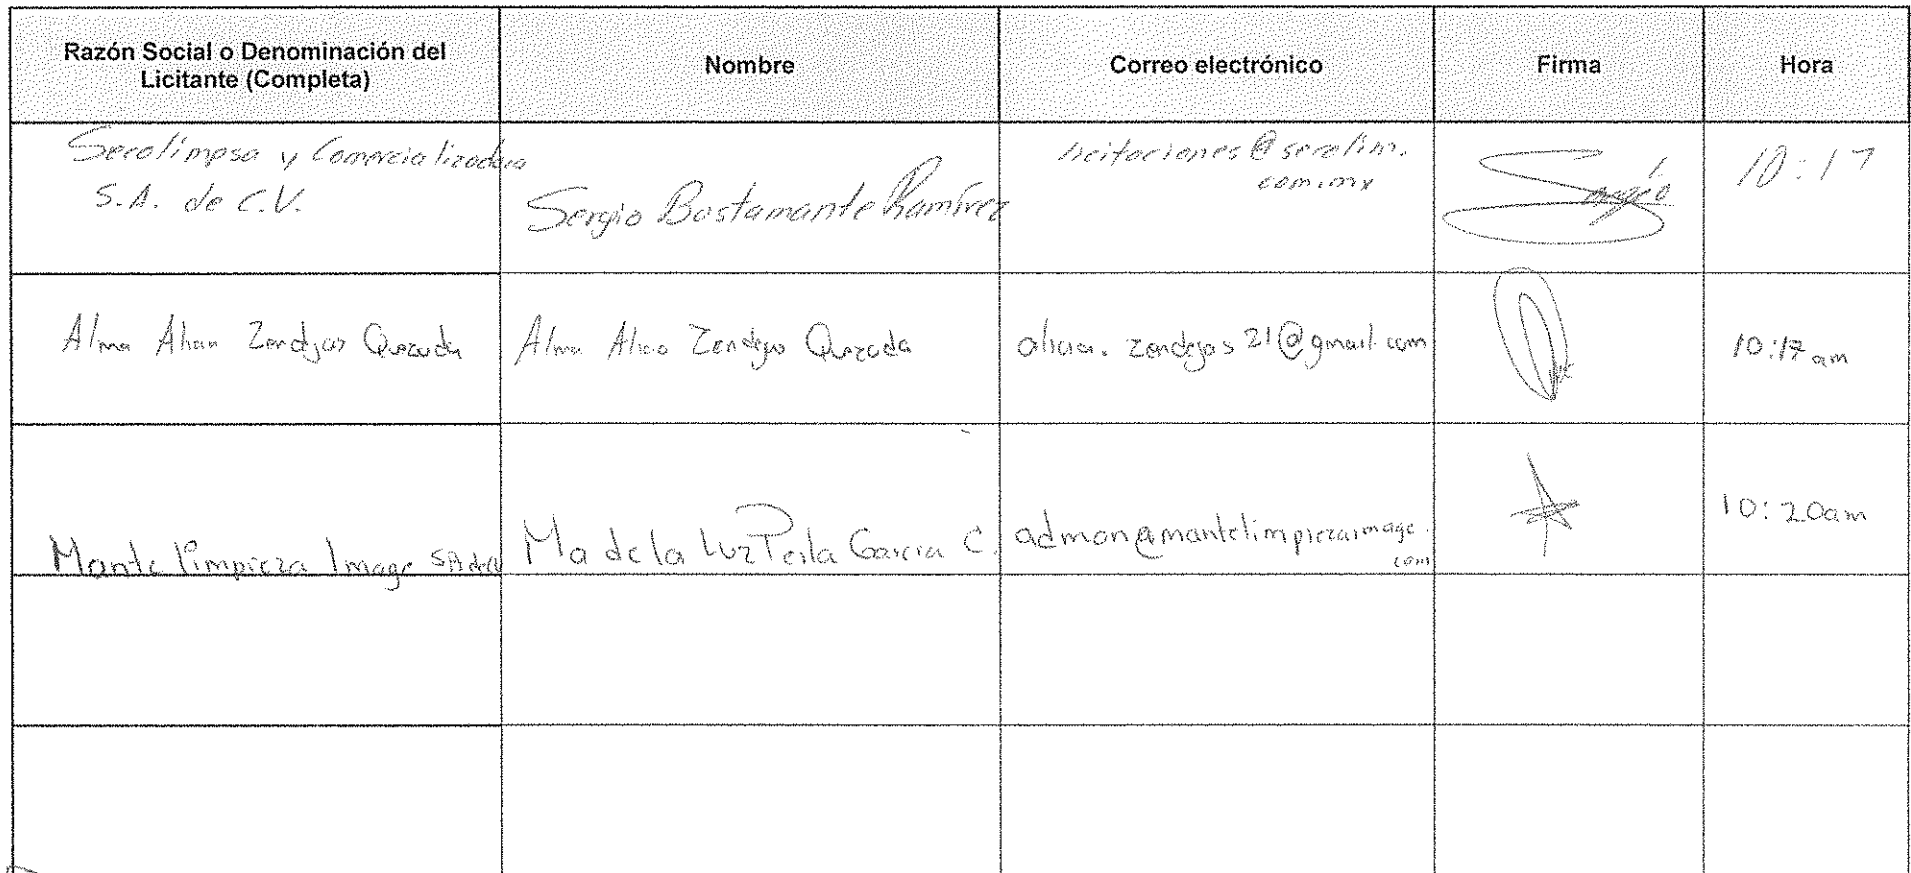 Razón Social o Denominación del
Licitante (Completa)
Nombre
Correo electrónico
Firma
Hora
Secolimpsa y Comercializadora
S.A. de C.V.
Sergio Bustamante Ramírez
licitaciones@secolim.
com.mx
10:17
Alma Alicia Zendejas Quezada
Alma Alicia Zendejas Quezada
alicia.zendejas21@gmail.com
10:17 am
Mante limpieza Image SA de CV
Ma de la Luz Perla Garcia C.
admon@mantelimpiezaimage.
com
10:20am